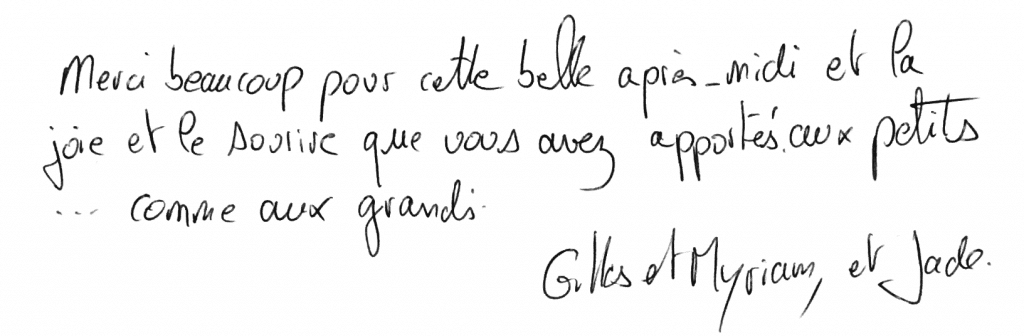 Merci beaucoup pour cette belle après-midi et la
joie et le sourire que vous avez apportés aux petits
... comme aux grands.
Gilles et Myriam, et Jade.